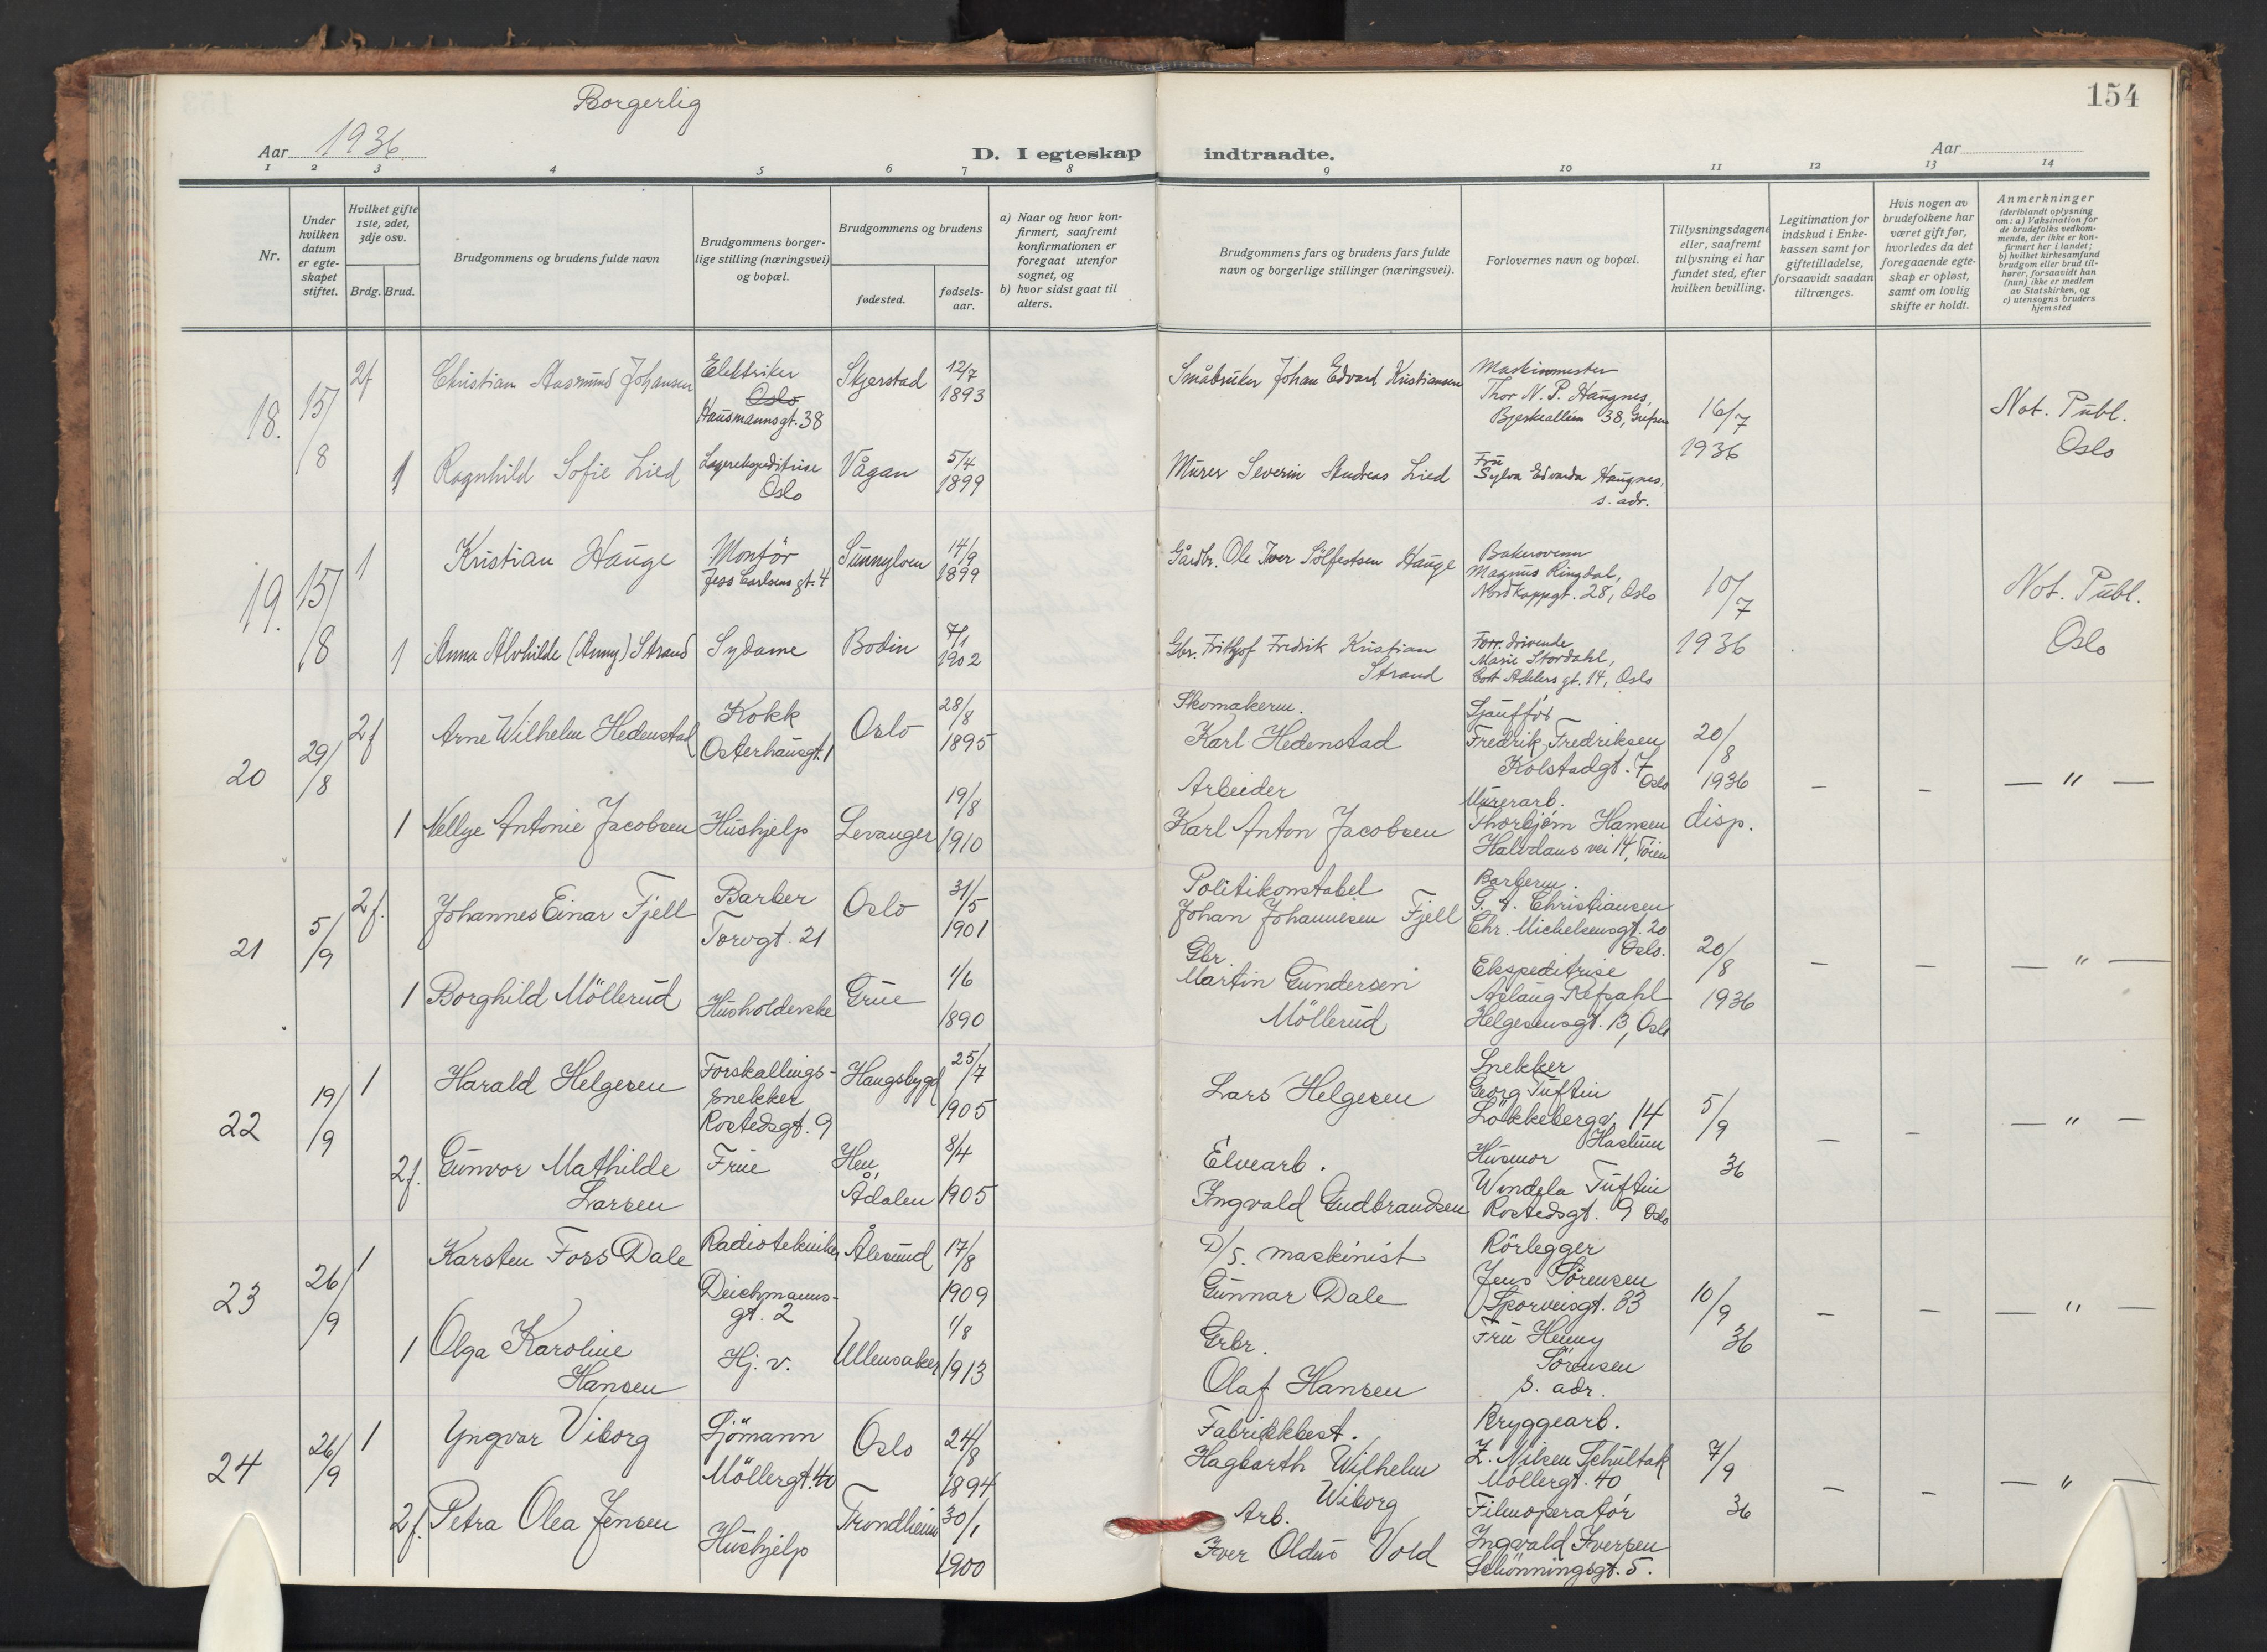 154
Borgerlig
Aar 1936.
D. I egteskap indtraadte.
Aar
1 2 3 4 5 6 7 8 9 10 11 12 13 14
Nr.
Under hvilken datum er egte-skapet stiftet.
Hvilket gifte 1ste, 2det, 3dje osv.
Brdg. Brud.
Brudgommens og brudens fulde navn
Brudgommens borger-
lige stilling (næringsvei)
og bopæl.
Brudgommens og brudens
fødested.
fødsels-
aar.
a) Naar og hvor kon-
firmert, saafremt
konfirmationen er
foregaat utenfor
sognet, og
b) hvor sidst gaat til
alters.
Brudgommens fars og brudens fars fulde
navn og borgerlige stillinger (næringsvei).
Forlovernes navn og bopæl.
Tillysningsdagene
eller, saafremt
tillysning ei har
fundet sted, efter
hvilken bevilling.
Legitimation for
indskud i Enke-
kassen samt for
giftetilladelse,
forsaavidt saadan
tiltrænges.
Hvis nogen av
brudefolkene har
været gift før,
hvorledes da det
foregaaende egte-
skap er opløst,
samt om lovlig
skifte er holdt.
Anmerkninger
(deriblandt oplysning
om: a) Vaksination for
de brudefolks vedkom-
mende, der ikke er kon-
firmert her i landet;
b) hvilket kirkesamfund
brudgom eller brud til-
hører, forsaavidt han
(hun) ikke er medlem
av Statskirken, og
c) utensogns bruders
hjemsted
18.
15/8
2f
Christian Aasmund Johansen
Elektriker
Oslo
Hausmannsgt. 38
Skjerstad
12/7
1893
Småbruker Johan Edvard Kristiansen
Maskinmester
Thor N. P. Haugnes,
Bjerkealleen 38, Grefsen
16/7
1936
Not. Publ.
Oslo
1
Ragnhild Sofie Lied
Lagerekspeditrise
Oslo
Vågan
5/4
1899
Murer Severin Andreas Lied
Fru
Sylva Edvarda Haugnes,
s. adr.
19.
15/8
1
Kristian Hauge
Montör
Jess Carlsens gt. 4
Sunnylven
14/9
1899
Gårdbr. Ole Iver Sölfestsen Hauge
Bakersvenn
Magnus Ringdal,
Nordkappgt. 28, Oslo
10/7
1936
Not. Publ.
Oslo
1
Anna Alvhilde (Anny) Strand
Sydame
Bodin
7/1
1902
Gbr. Frithjof Fredrik Kristian
Strand
Forr. drivende
Marie Stordahl,
Cort Adelers gt. 14, Oslo
20
29/8
2f
Arne Wilhelm Hedenstad
Kokk
Osterhausgt. 1
Oslo
28/8
1895
Skomakerm.
Karl Hedenstad
Sjåufför
Fredrik Fredriksen
Kolstadgt. 7
Oslo
20/8
1936
disp.
– – — " —
1
Nellye Antonie Jacobsen
Hushjelp
Levanger
19/8
1910
Arbeider
Karl Anton Jacobsen
Murerarb.
Thorbjörn Hansen
Halvdans vei 14, Töien
21
5/9
2f.
Johannes Einar Fjell
Barber
Torvgt. 21
Oslo
31/5
1901
Politikonstabel
Johan Johannesen Fjell
Barberm.
G. A. Christiansen
Chr. Michelsensgt. 20
Oslo.
20/8
1936
– – — " —
1
Borghild Möllerud
Husholderske
Grue
1/6
1890
Gbr.
Martin Gundersen
Möllerud
Ekspeditrise
Aslaug Refsahl
Helgesensgt. 13, Oslo
22
19/9
1
Harald Helgesen
Forskallings-
snekker
Rostedsgt. 9
Haugsbygd
25/7
1905
Lars Helgesen
Snekker
Georg Tuftin
Lökkeberga 14
Haslum
5/9
36
– – — " —
2f.
Gunvor Mathilde
Larsen
Frue
Hen,
Ådalen
8/4
1905
Elvearb.
Ingvald Gudbrandsen
Husmor
Windela Tuftin
Rostedsgt. 9 Oslo
23
26/9
1
Karsten Foss Dale
Radiotekniker
Deichmanns-
gt. 2
Ålesund
17/8
1909
D/S. maskinist
Gunnar Dale
Rörlegger
Jens Sörensen
Sporveisgt. 33
10/9
36
– – — " —
1
Olga Karoline
Hansen
Hj. v.
Ullensaker
1/8
1913
Grbr.
Olaf Hansen
Fru Henny
Sörensen
s. adr.
24
26/9
1
Yngvar Viborg
Sjömann
Möllergt. 40
Oslo
24/8
1894
Fabrikkbest.
Hagbarth Wilhelm
Wiborg
Bryggearb.
Z. Nilsen Schultak
Möllergt. 40
7/9
36
– – — " —
2f.
Petra Olea Jensen
Hushjelp
Trondheim
30/1
1900
Arb.
Iver Oldus Vold
Filmoperatör
Ingvald Iversen
Schönningsgt. 5.